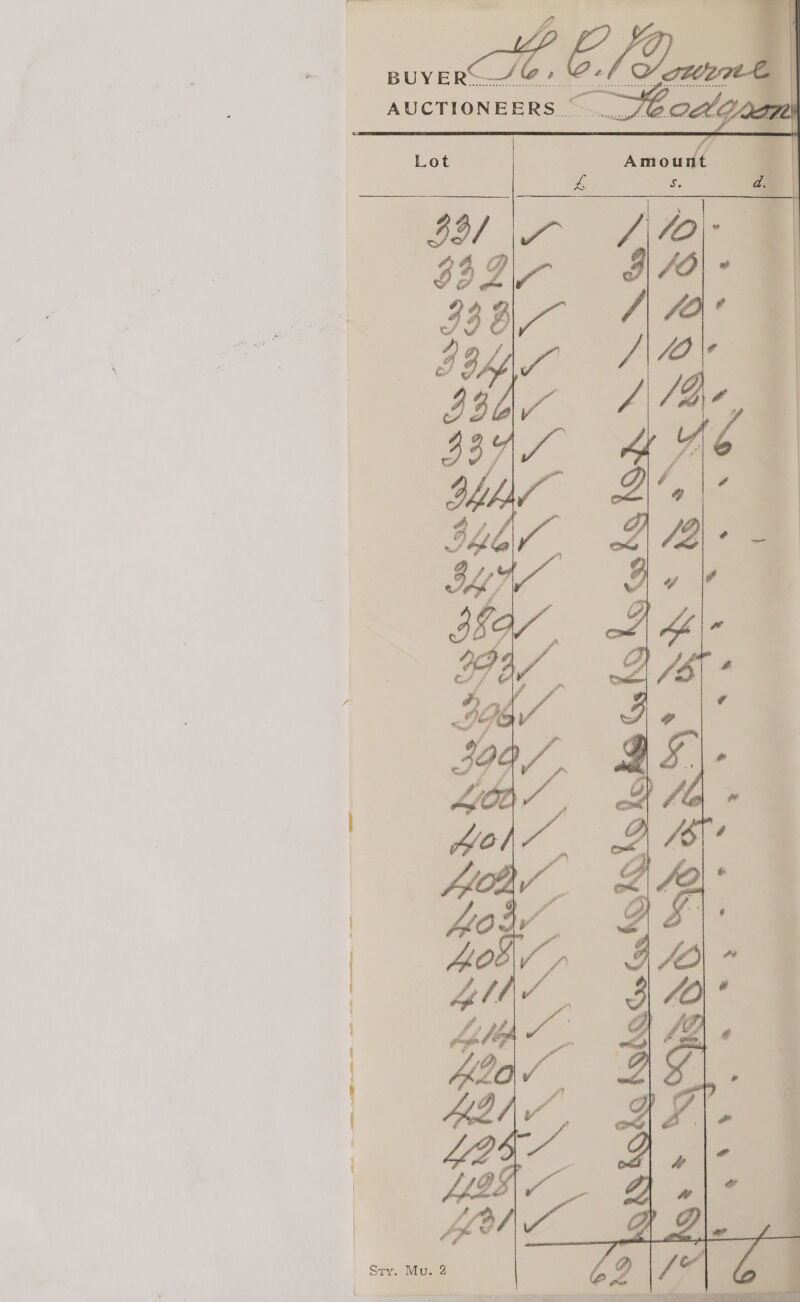 BUYER H. C. Bourne
AUCTIONEERS Hodgson
Lot Amount
£ s. d.
331 ✓ 1 10 -
332 ✓ 3 10 -
333 ✓ 1 10 -
334 ✓ 1 10 -
336 ✓ 1 12 -
337 ✓ 4 7 6
344 ✓ 2 - -
346 ✓ 2 12 -
347 ✓ 3 - -
380 ✓ 2 4 -
393 ✓ 2 15 -
396 ✓ 3 - -
399 ✓ 2 5 -
400 ✓ 2 16 -
401 ✓ 2 15 -
402 ✓ 2 10 -
403 ✓ 2 5 -
408 ✓ 3 10 -
411 ✓ 3 10 -
414 ✓ 2 12 -
420 ✓ 2 2 -
421 ✓ 2 5 -
425 ✓ 2 - -
428 ✓ 2 - -
431 ✓ 2 2 -
Sty. Mu. 2 62 15 6